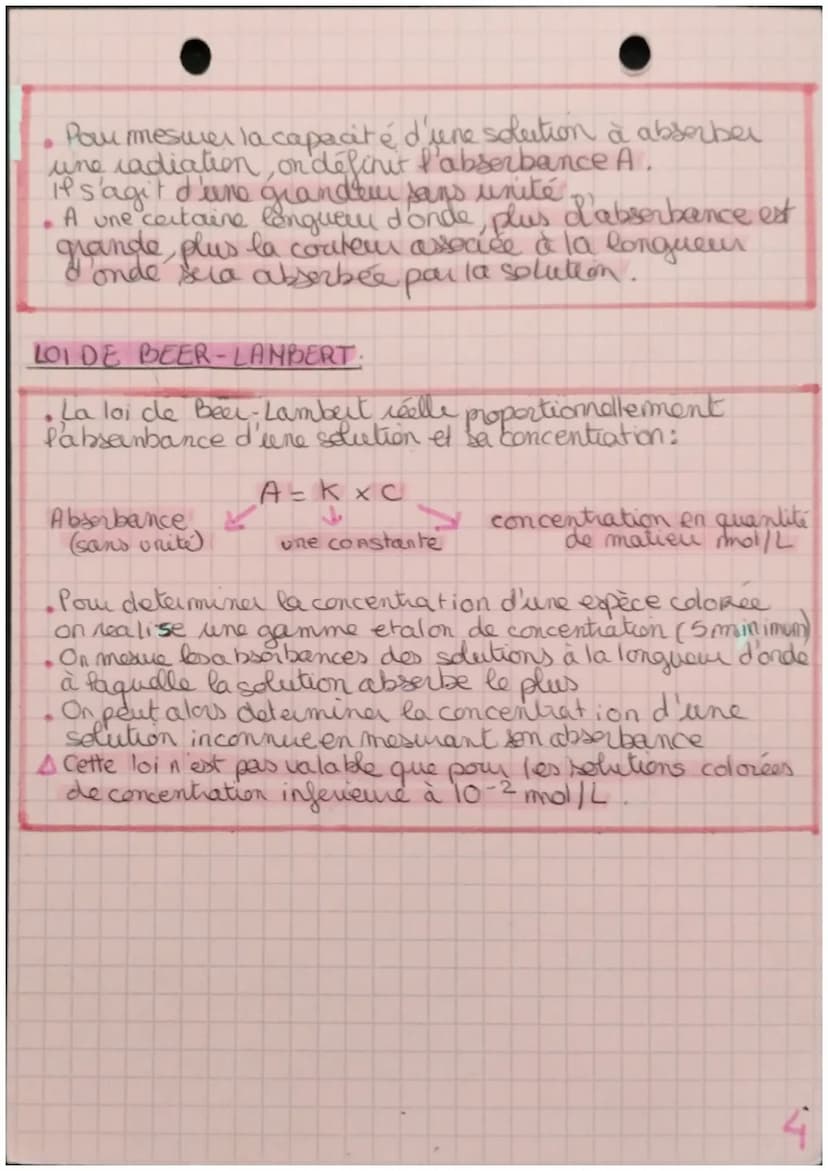 • Pour mesurer la capacité d'une solution à absorber
une radiation, on définit l'absorbance A.
Il s'agit d'une grandeur sans unité.
• A une certaine longueur d'onde, plus d'absorbance est
grande, plus la couleur associée à la longueur
d'onde sera absorbée par la solution.
LOI DE BEER-LAMBERT.
• La loi de Beer-Lambert réelle proportionnellement
l'absanbance d'une solution et sa concentration:
A = K × C
Absorbance
(sans unité)
une constante
concentration en quantité
de matieu mol/L
• Pour determiner la concentration d'une espèce colorée
on realise une gamme etalon de concentration (5 minimum)
• On mesure les absorbances des solutions à la longueur d'onde
à laquelle la solution absorbe le plus
• On peut alors determiner la concentration d'une
solution inconnue en mesurant son absorbance
△ Cette loi n'est pas valable que pour les solutions colorées
de concentration inferieure à 10⁻² mol/L.
4